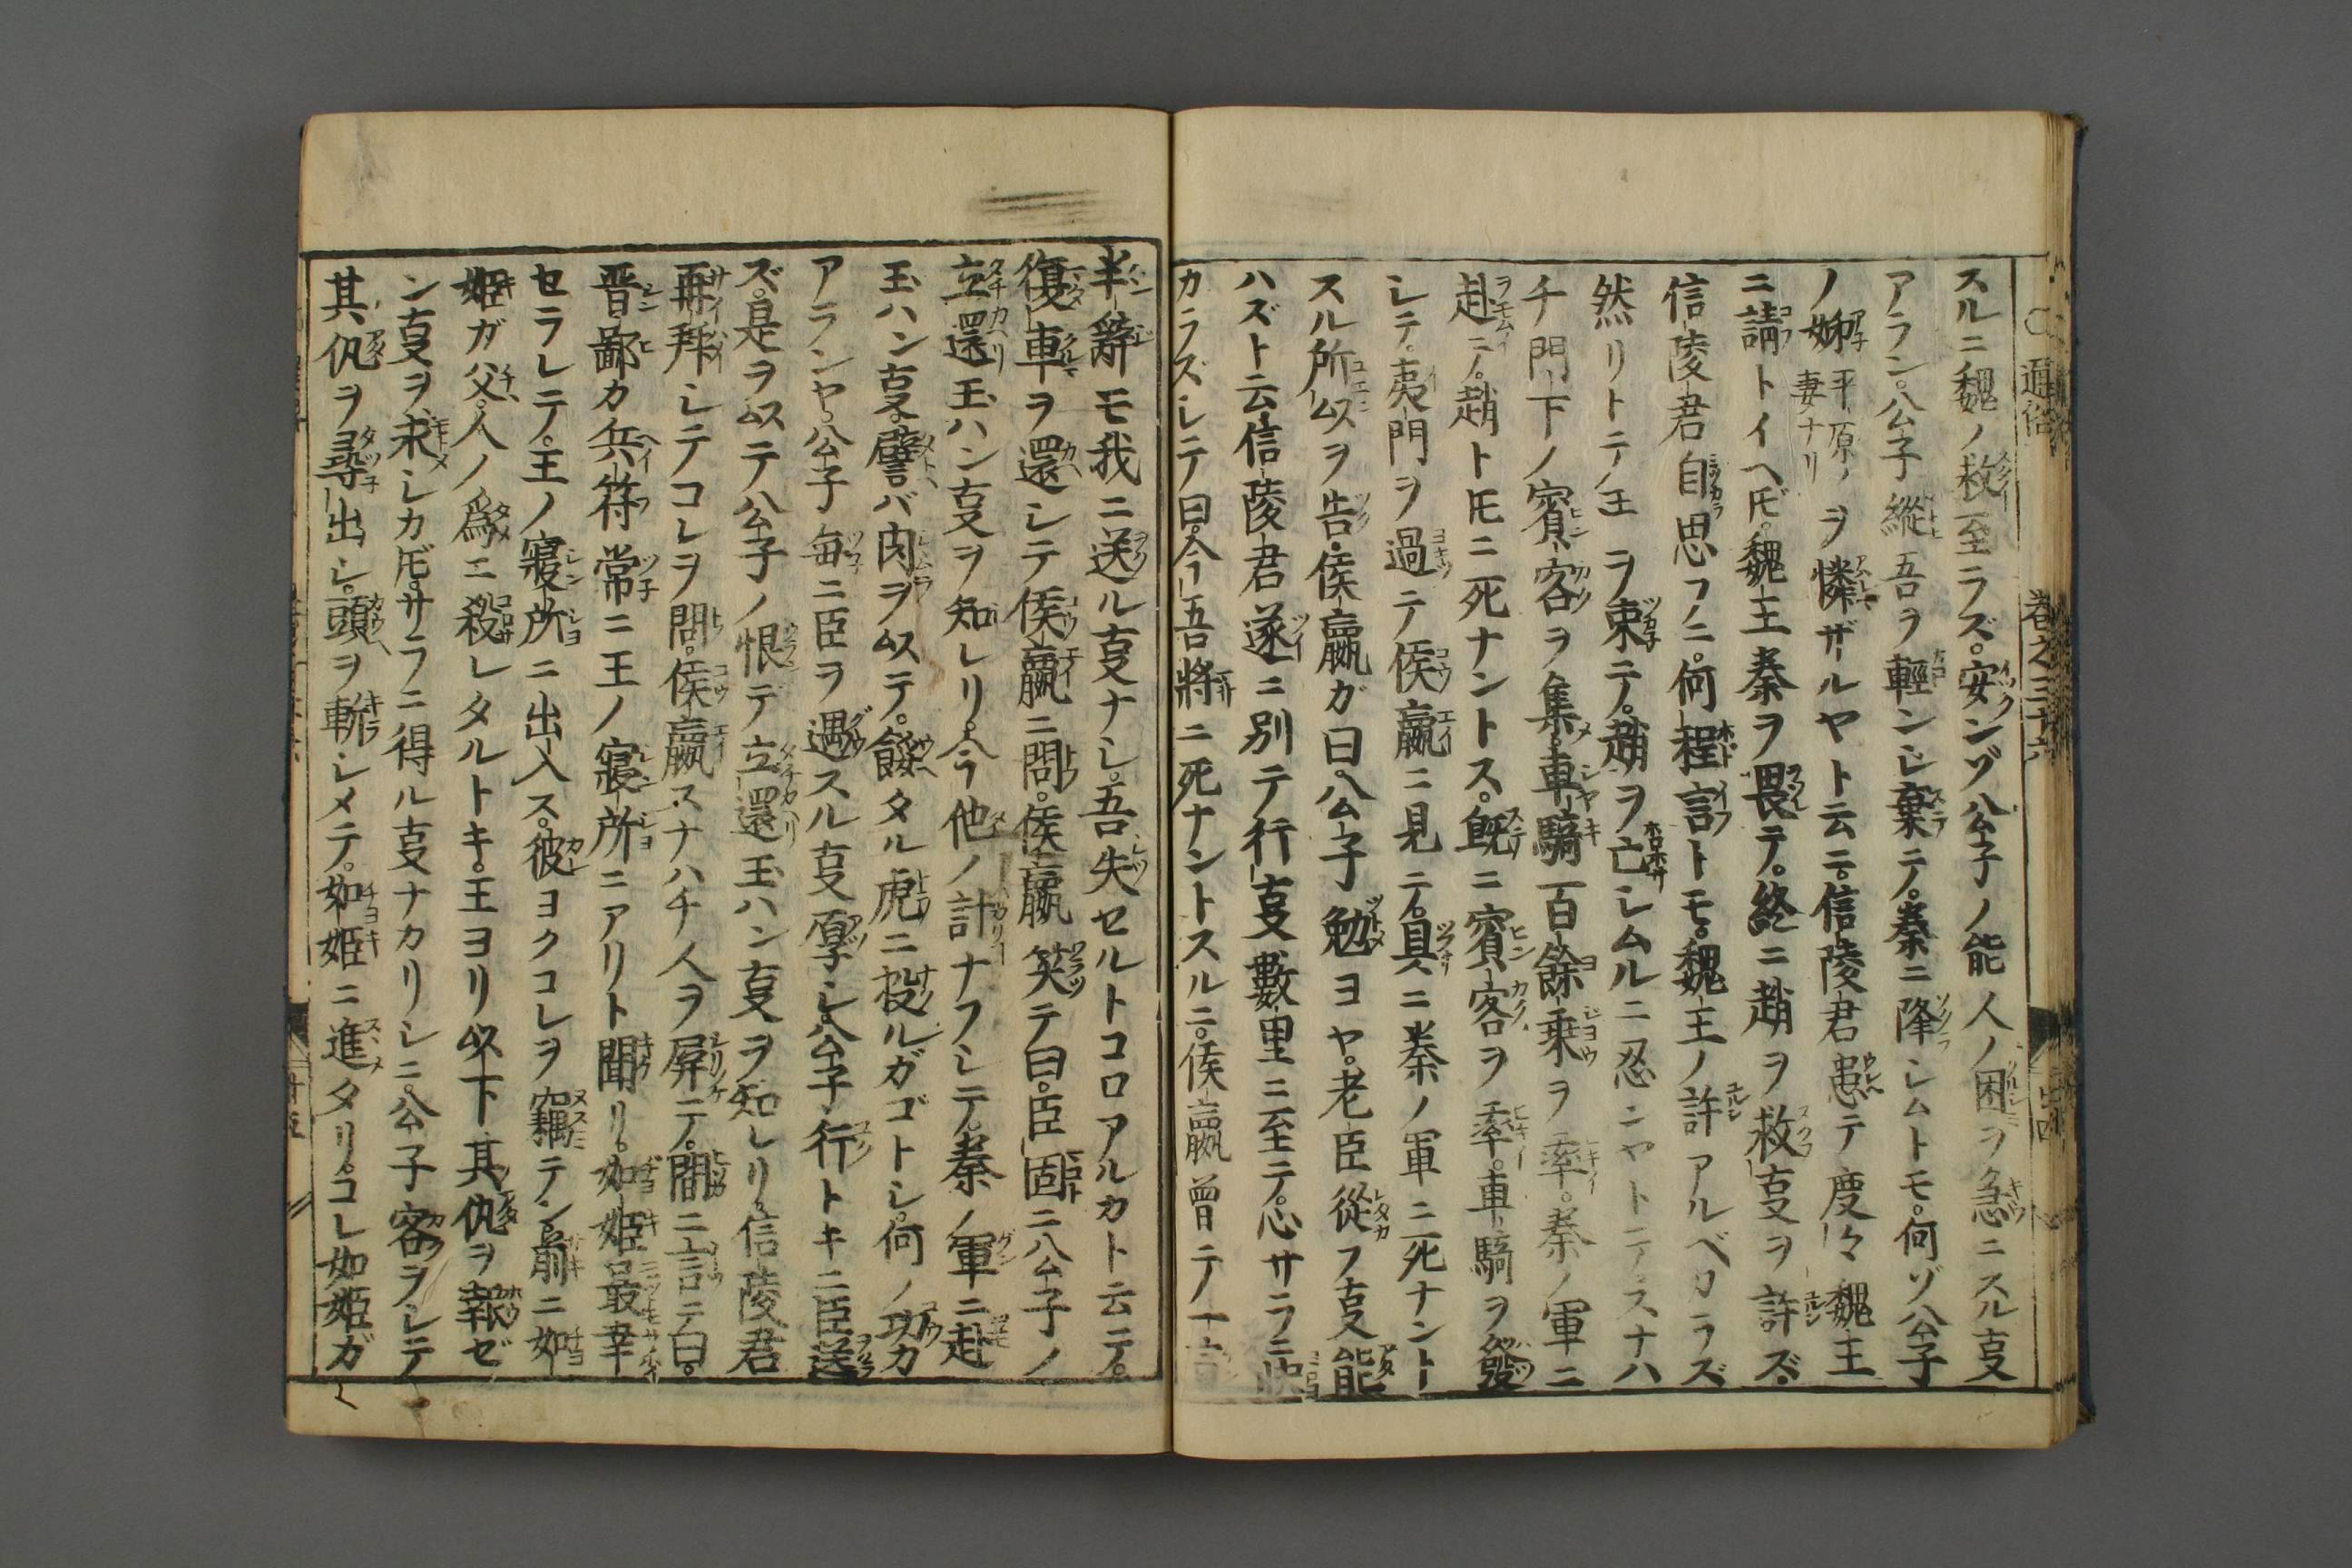 通俗 卷之三十六
スルニ魏ノ救至ラズ。安ンゾ公子ノ能人ノ困ヲ急ニスル叓
アラン。公子縱吾ヲ輕ンじ棄テ。秦ニ降シムトモ。何ゾ公子
ノ姊平原ノ妻ナリヲ憐ザルヤト云ニ。信陵君患テ度々魏王
ニ請トイヘ𪜈。魏王秦ヲ畏テ。終ニ趙ヲ救叓ヲ許ズ。
信陵君自思フニ。何程言トモ。魏王ノ許アルベカラズ
然リトテ王ヲ束テ。趙ヲ亡シムルニ忍ンヤトテ。スナハ
チ門下ノ賓客ヲ集メ。車騎百餘乘ヲ率。秦ノ軍ニ
赴テ。趙ト𪜈ニ死ナントス。既ニ賓客ヲ率。車騎ヲ發
シテ。夷門ヲ過テ侯嬴ニ見テ。具ニ秦ノ軍ニ死ナント
スル所以ヲ告。侯嬴ガ曰。公子勉ヨヤ。老臣從フ叓能
ハズト云信陵君遂ニ別テ行叓數里ニ至テ。心サラニ快
カラズシテ曰。今吾將ニ死ナントスルニ。侯嬴曾テ一言
半辭モ我ニ送ル叓ナシ。吾失セルトコロアルカト云テ。
復車ヲ還シテ侯嬴ニ問。侯嬴笑テ曰。臣固ニ公子ノ
立還玉ハン叓ヲ知レリ。今他ノ計ナフシテ。秦ノ軍ニ赴
玉ハン叓。譬バ肉ヲ以テ。餒タル虎ニ投ルガゴトシ。何ノ功カ
アランヤ。公子毎ニ臣ヲ遇スル叓厚シ。公子行トキニ臣送
ズ。是ヲ以テ公子ノ恨デ立還玉ハン叓ヲ知レリ。信陵君
再拜シテコレヲ問。侯嬴スナハチ人ヲ屏テ。間ニ言テ曰。
晋鄙カ兵符常ニ王ノ寢所ニアリト聞リ。如姬最幸
セラレテ。王ノ寢所ニ出入ス。彼ヨクコレヲ竊テン。前ニ如
姬ガ父。人ノ爲ニ殺レタルトキ。王ヨリ以下其仇ヲ報ゼ
ン叓ヲ求シカ𪜈。サラニ得ル叓ナカリシニ。公子客ヲシテ
其仇ヲ尋出シ。頭ヲ斬シメテ。如姬ニ進タリ。コレ如姬ガ